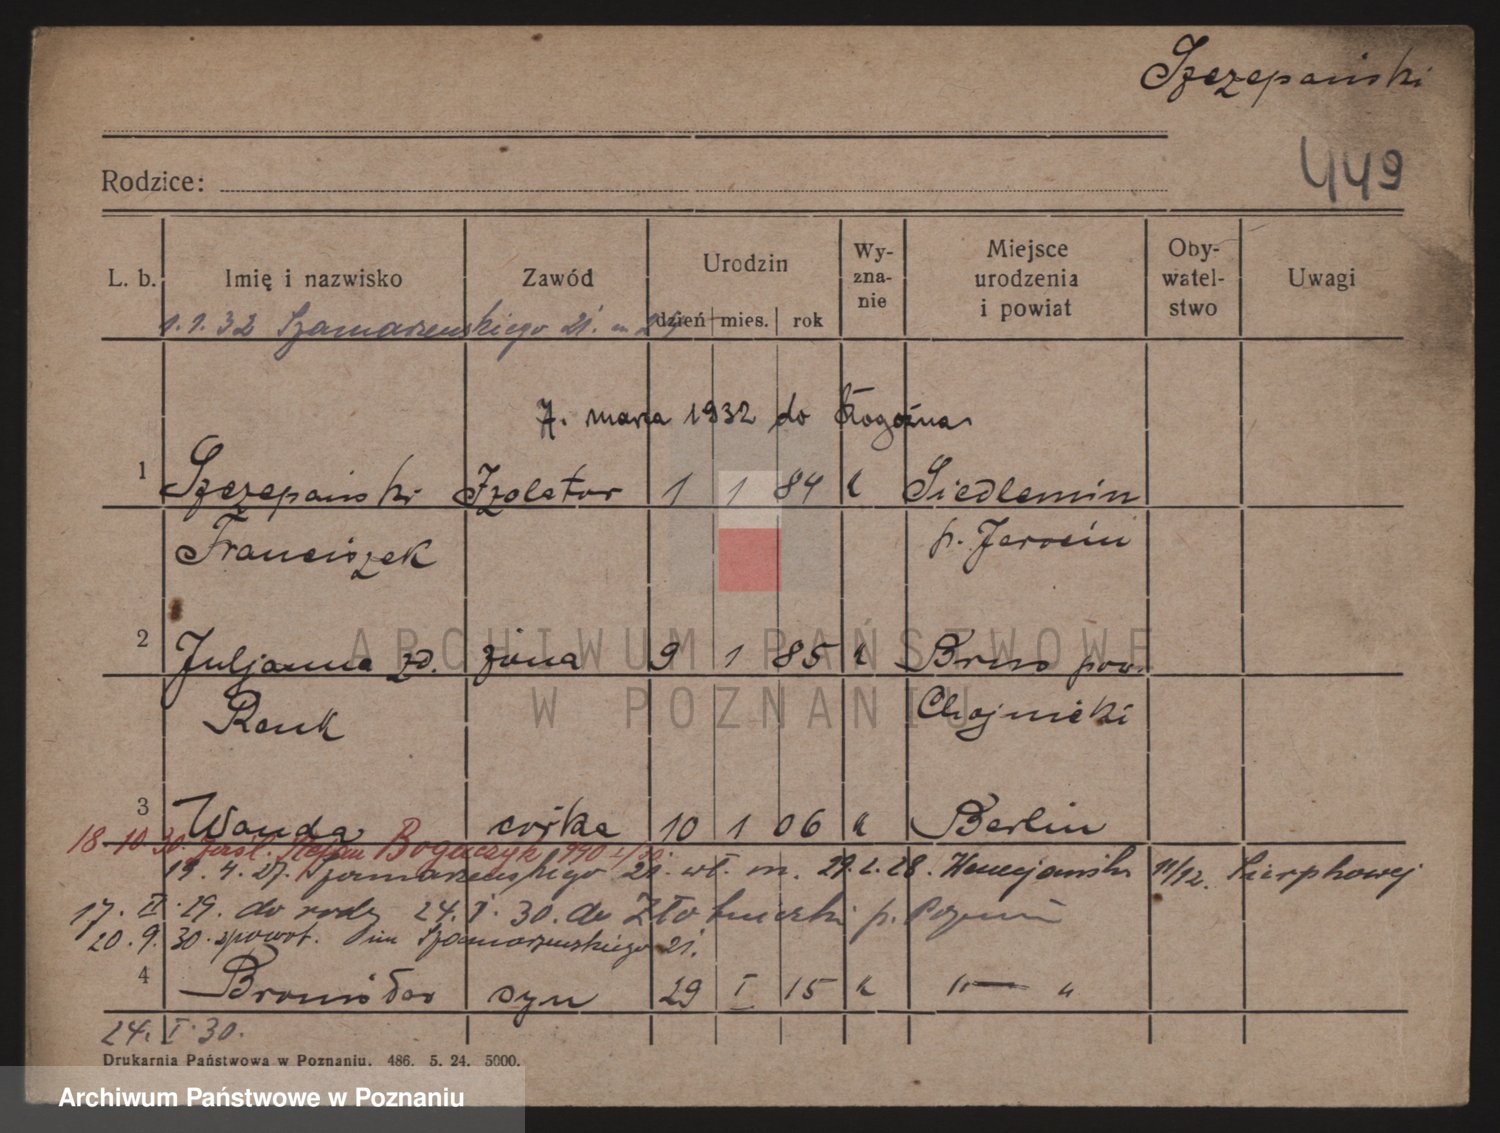 Szczepański
449
Rodzice:
L. b. Imię i nazwisko Zawód Urodzin dzień mies. rok Wy-zna-nie Miejsce urodzenia i powiat Oby-watel-stwo Uwagi
1.1.32 Szamarzewskiego 21. m
7. marca 1932 do Rogoźna
1 Szczepański Izolator 1 1 84 k Siedlemin
Franciszek p. Jarocin
2 Juljanna zd. żona 9 1 85 k Brus pow.
Renk Chojnicki
3 Wanda córka 10 1 06 k Berlin
18.10.30. Stefan Bogaczyk 990
19.4.27. Szamarzewskiego 21. wł. m. 29.2.28. 11/12.
17.II.29. do rodz 24.I.30. do p. Poznań
20.9.30. spowot. Szamarzewskiego 21.
4 Bronisław syn 29 I 15 k " — "
24.I.30.
Drukarnia Państwowa w Poznaniu. 486. 5. 24. 5000.
ARCHIWUM PAŃSTWOWE
W POZNANIU
Archiwum Państwowe w Poznaniu